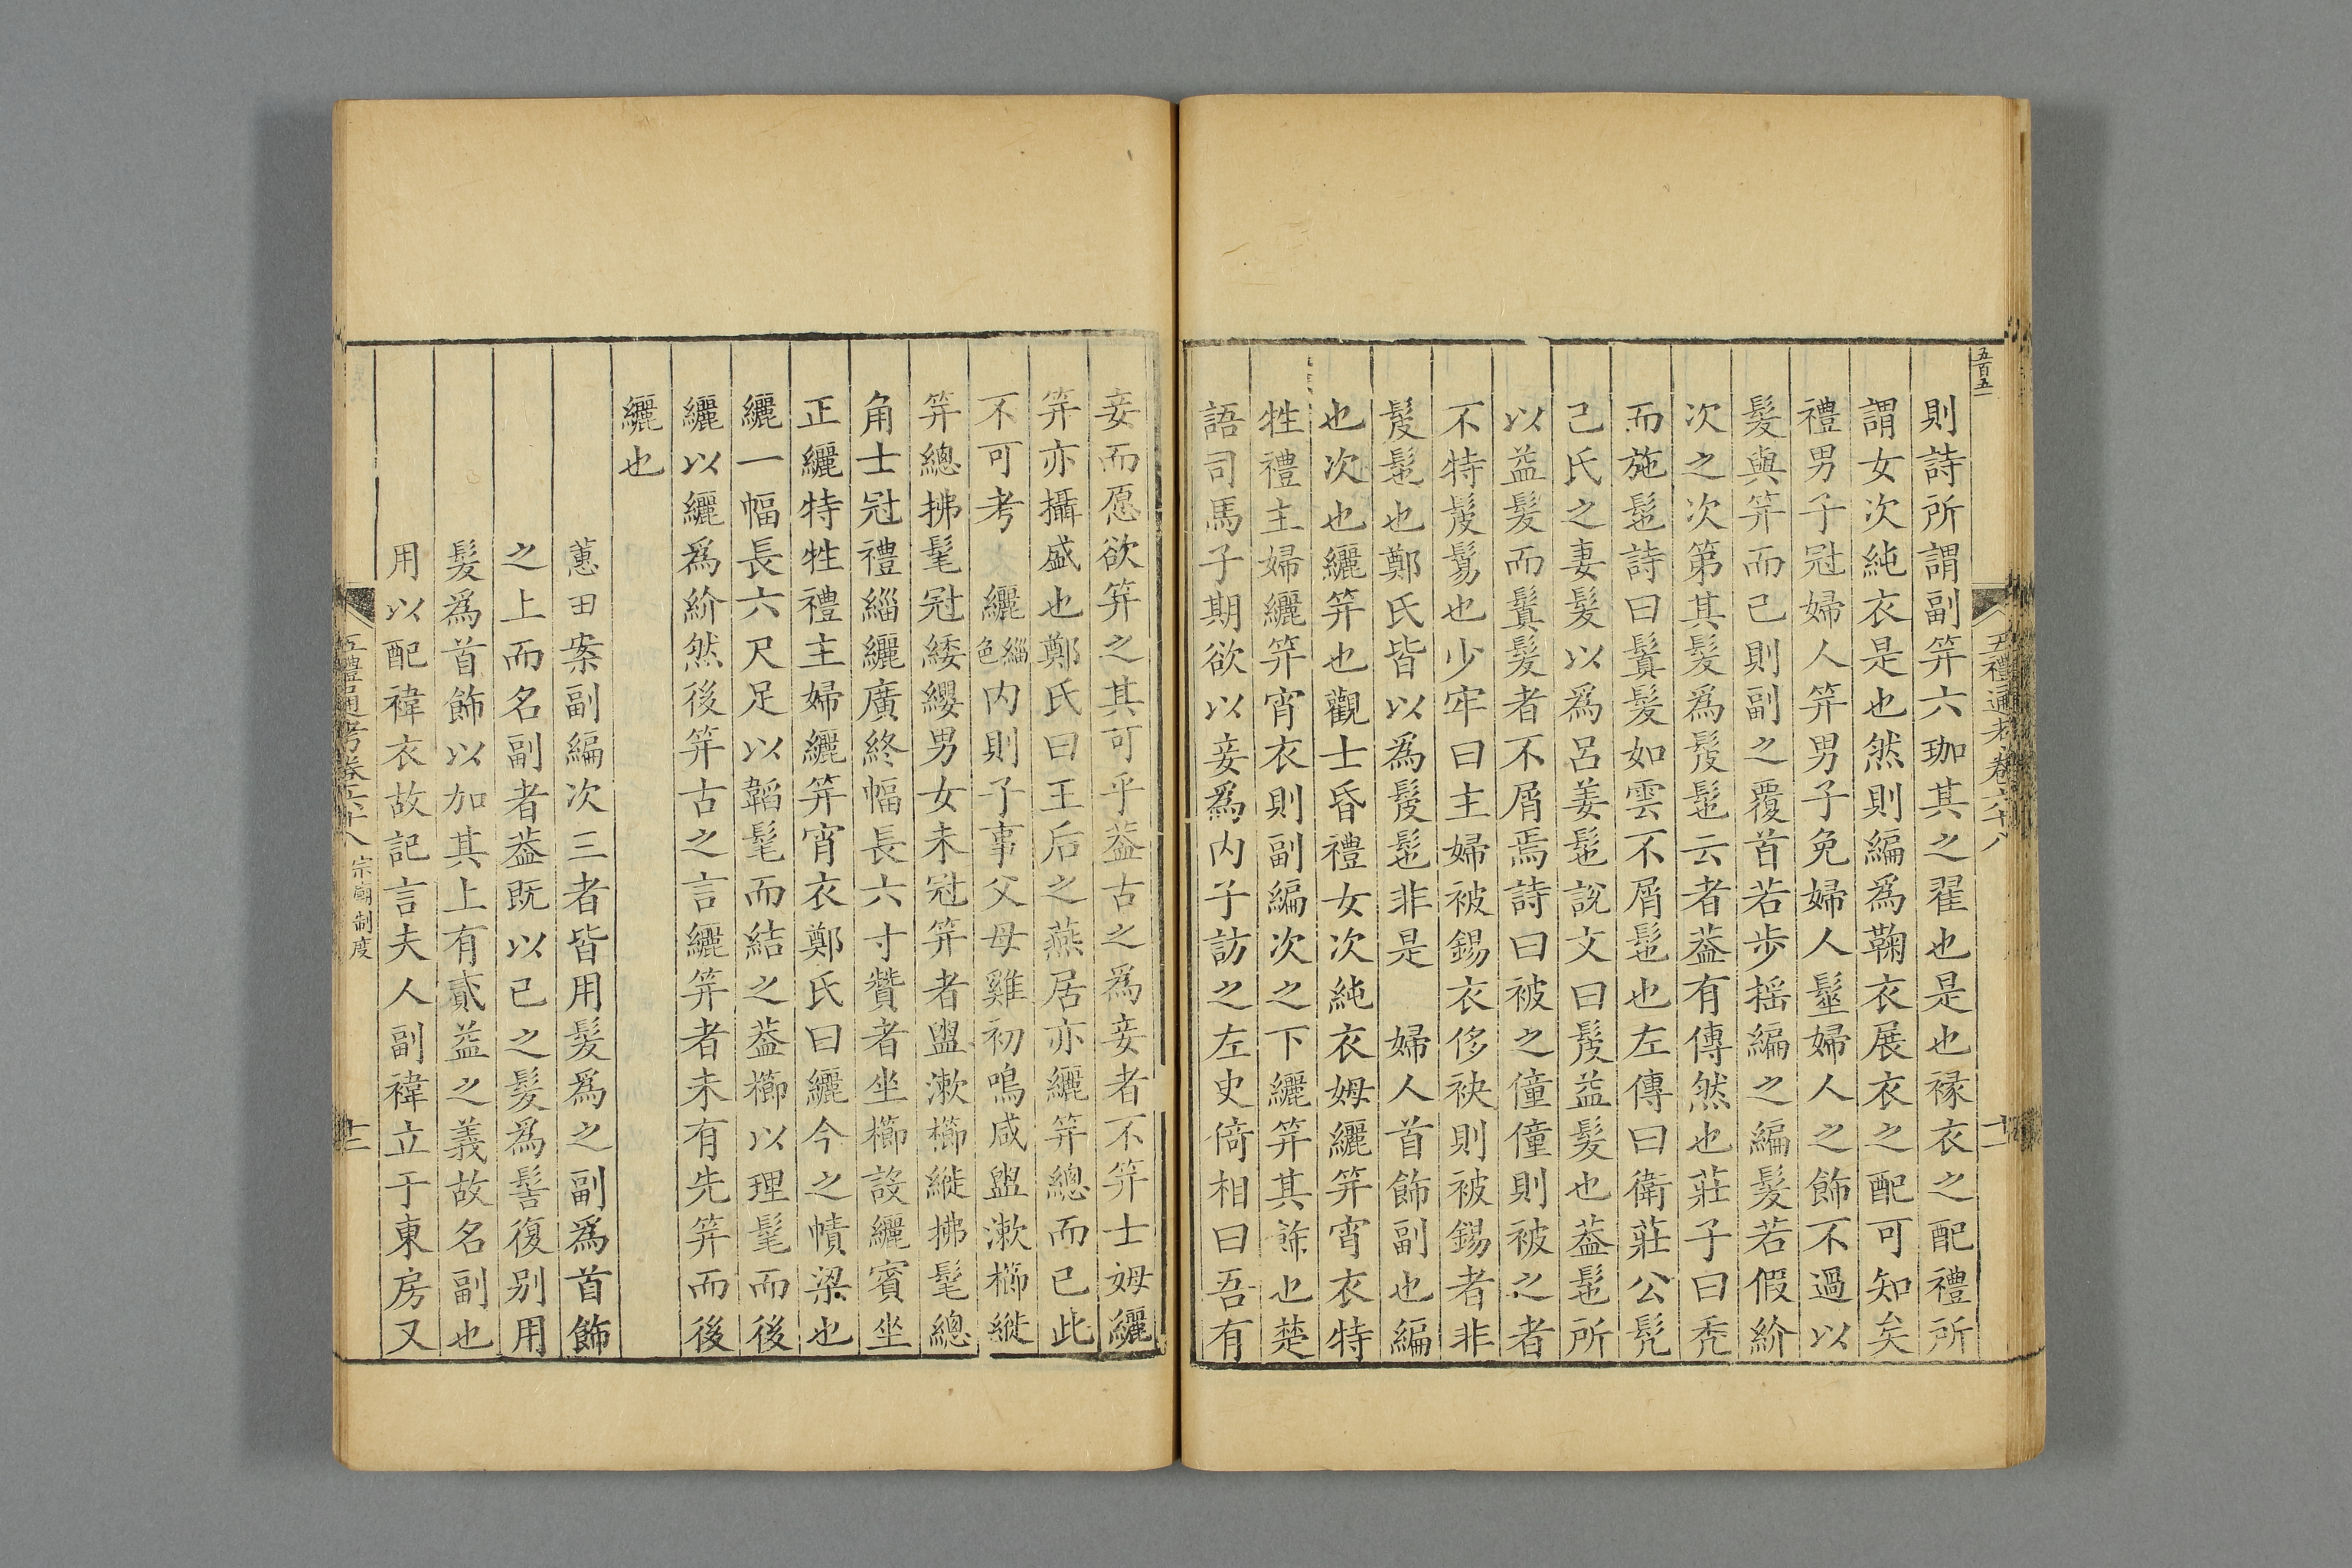 五百五
五禮通考卷六十八
十一
則詩所謂副笄六珈其之翟也是也褖衣之配禮所
謂女次純衣是也然則編爲鞠衣展衣之配可知矣
禮男子冠婦人笄男子免婦人髽婦人之飾不過以
髮與笄而已則副之覆首若步摇編之編髮若假紒
次之次第其髮爲髲髢云者葢有傳然也莊子曰秃
而施髢詩曰鬒髮如雲不屑髢也左傳曰衛莊公髡
己氏之妻髮以爲呂姜髢說文曰髲益髮也葢髢所
以益髮而鬒髮者不屑焉詩曰被之僮僮則被之者
不特髲鬄也少牢曰主婦被錫衣侈袂則被錫者非
髲髢也鄭氏皆以爲髲髢非是　婦人首飾副也編
也次也纚笄也觀士昏禮女次純衣姆纚笄宵衣特
牲禮主婦纚笄宵衣則副編次之下纚笄其飾也楚
語司馬子期欲以妾爲内子訪之左史倚相曰吾有
妾而愿欲笄之其可乎葢古之爲妾者不笄士姆纚
笄亦攝盛也鄭氏曰王后之燕居亦纚笄總而已此
不可考　纚緇色内則子事父母雞初鳴咸盥漱櫛縰
笄總拂髦冠緌纓男女未冠笄者盥漱櫛縰拂髦總
角士冠禮緇纚廣終幅長六寸贊者坐櫛設纚賓坐
正纚特牲禮主婦纚笄宵衣鄭氏曰纚今之幘梁也
纚一幅長六尺足以韜髦而結之葢櫛以理髦而後
纚以纚爲紒然後笄古之言纚笄者未有先笄而後
纚也
蕙田案副編次三者皆用髮爲之副爲首飾
之上而名副者葢既以己之髮爲髻復别用
髮爲首飾以加其上有貳益之義故名副也
用以配褘衣故記言夫人副褘立于東房又
五禮通考卷六十八
宗廟制度
十二